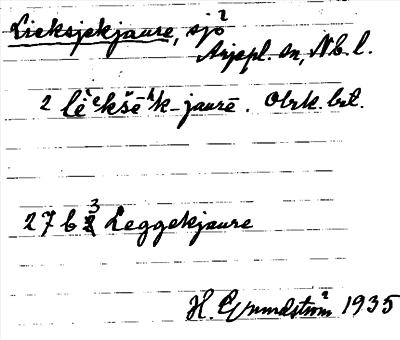 Lieksjekjaure, sjö
Arjepl. sn, Nb. l.
2 lèᵉkšēʰk-jaurē. Obrk. brl.
27 b 3 Leggekjaure
H. Grundström 1935